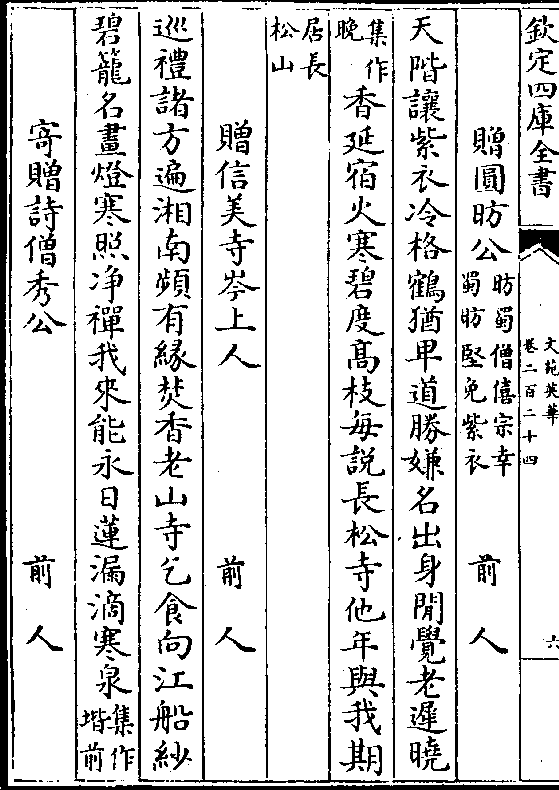 欽定四庫全書
文苑英華
卷二百二十四
六
贈圓昉公昉蜀僧僖宗幸蜀昉堅免紫衣 前人
天階讓紫衣冷格鶴猶卑道勝嫌名出身閒覺老遲曉
集作晚香延宿火寒碧度髙枝每説長松寺他年與我期
居長松山
贈信美寺岑上人 前人
巡禮諸方遍湘南頻有緣焚香老山寺乞食向江船紗
碧籠名畫燈寒照净禪我來能永日蓮漏滴寒泉集作堦前
寄贈詩僧秀公 前人